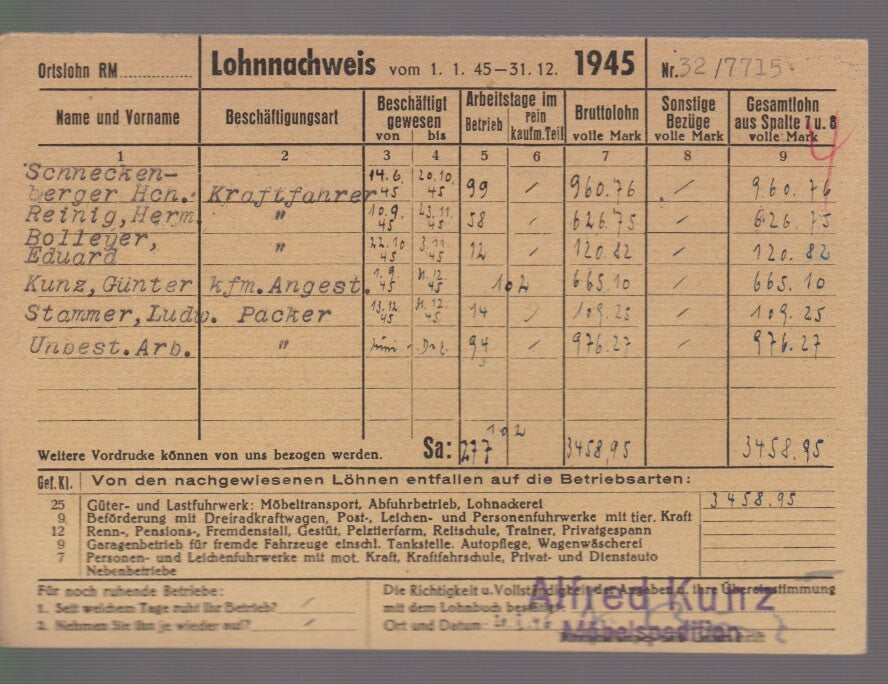 Ortslohn RM............ Lohnnachweis vom 1. 1. 45—31. 12. 1945 Nr. 32/7715
Name und Vorname Beschäftigungsart Beschäftigt gewesen von bis Arbeitstage im Betrieb rein kaufm. Teil Bruttolohn volle Mark Sonstige Bezüge volle Mark Gesamtlohn aus Spalte 7 u. 8 volle Mark
1 2 3 4 5 6 7 8 9
Schnecken-
berger Hch. Kraftfahrer 14.6. 45 20.10. 45 99 / 960.76 / 960.76
Reinig, Herm. " 10.9. 45 23.11. 45 58 / 626.75 / 626.75
Bolleyer,
Eduard " 22.10 45 3.11. 45 12 / 120.82 / 120.82
Kunz, Günter kfm. Angest. 1.9. 45 31.12. 45 102 665.10 / 665.10
Stammer, Ludw. Packer 13.12. 45 31.12. 45 14 / 109.25 / 109.25
Unbest. Arb. " Juni - Dez. 94 / 976.27 / 976.27
Weitere Vordrucke können von uns bezogen werden. Sa: 277 102 3458,95 3458.95
Gef. Kl. Von den nachgewiesenen Löhnen entfallen auf die Betriebsarten:
25 Güter- und Lastfuhrwerk: Möbeltransport, Abfuhrbetrieb, Lohnackerei 3458.95
9 Beförderung mit Dreiradkraftwagen, Post-, Leichen- und Personenfuhrwerke mit tier. Kraft
12 Renn-, Pensions-, Fremdenstall, Gestüt, Pelztierfarm, Reitschule, Trainer, Privatgespann
9 Garagenbetrieb für fremde Fahrzeuge einschl. Tankstelle. Autopflege, Wagenwäscherei
7 Personen- und Leichenfuhrwerke mit mot. Kraft, Kraftfahrschule, Privat- und Dienstauto
Nebenbetriebe
Für noch ruhende Betriebe: Die Richtigkeit u. Vollständigkeit der Angaben u. ihre Übereinstimmung
1. Seit welchem Tage ruht Ihr Betrieb? / mit dem Lohnbuch bestätigt
2. Nehmen Sie ihn je wieder auf? / Ort und Datum
Alfred Kunz
Möbelspedition